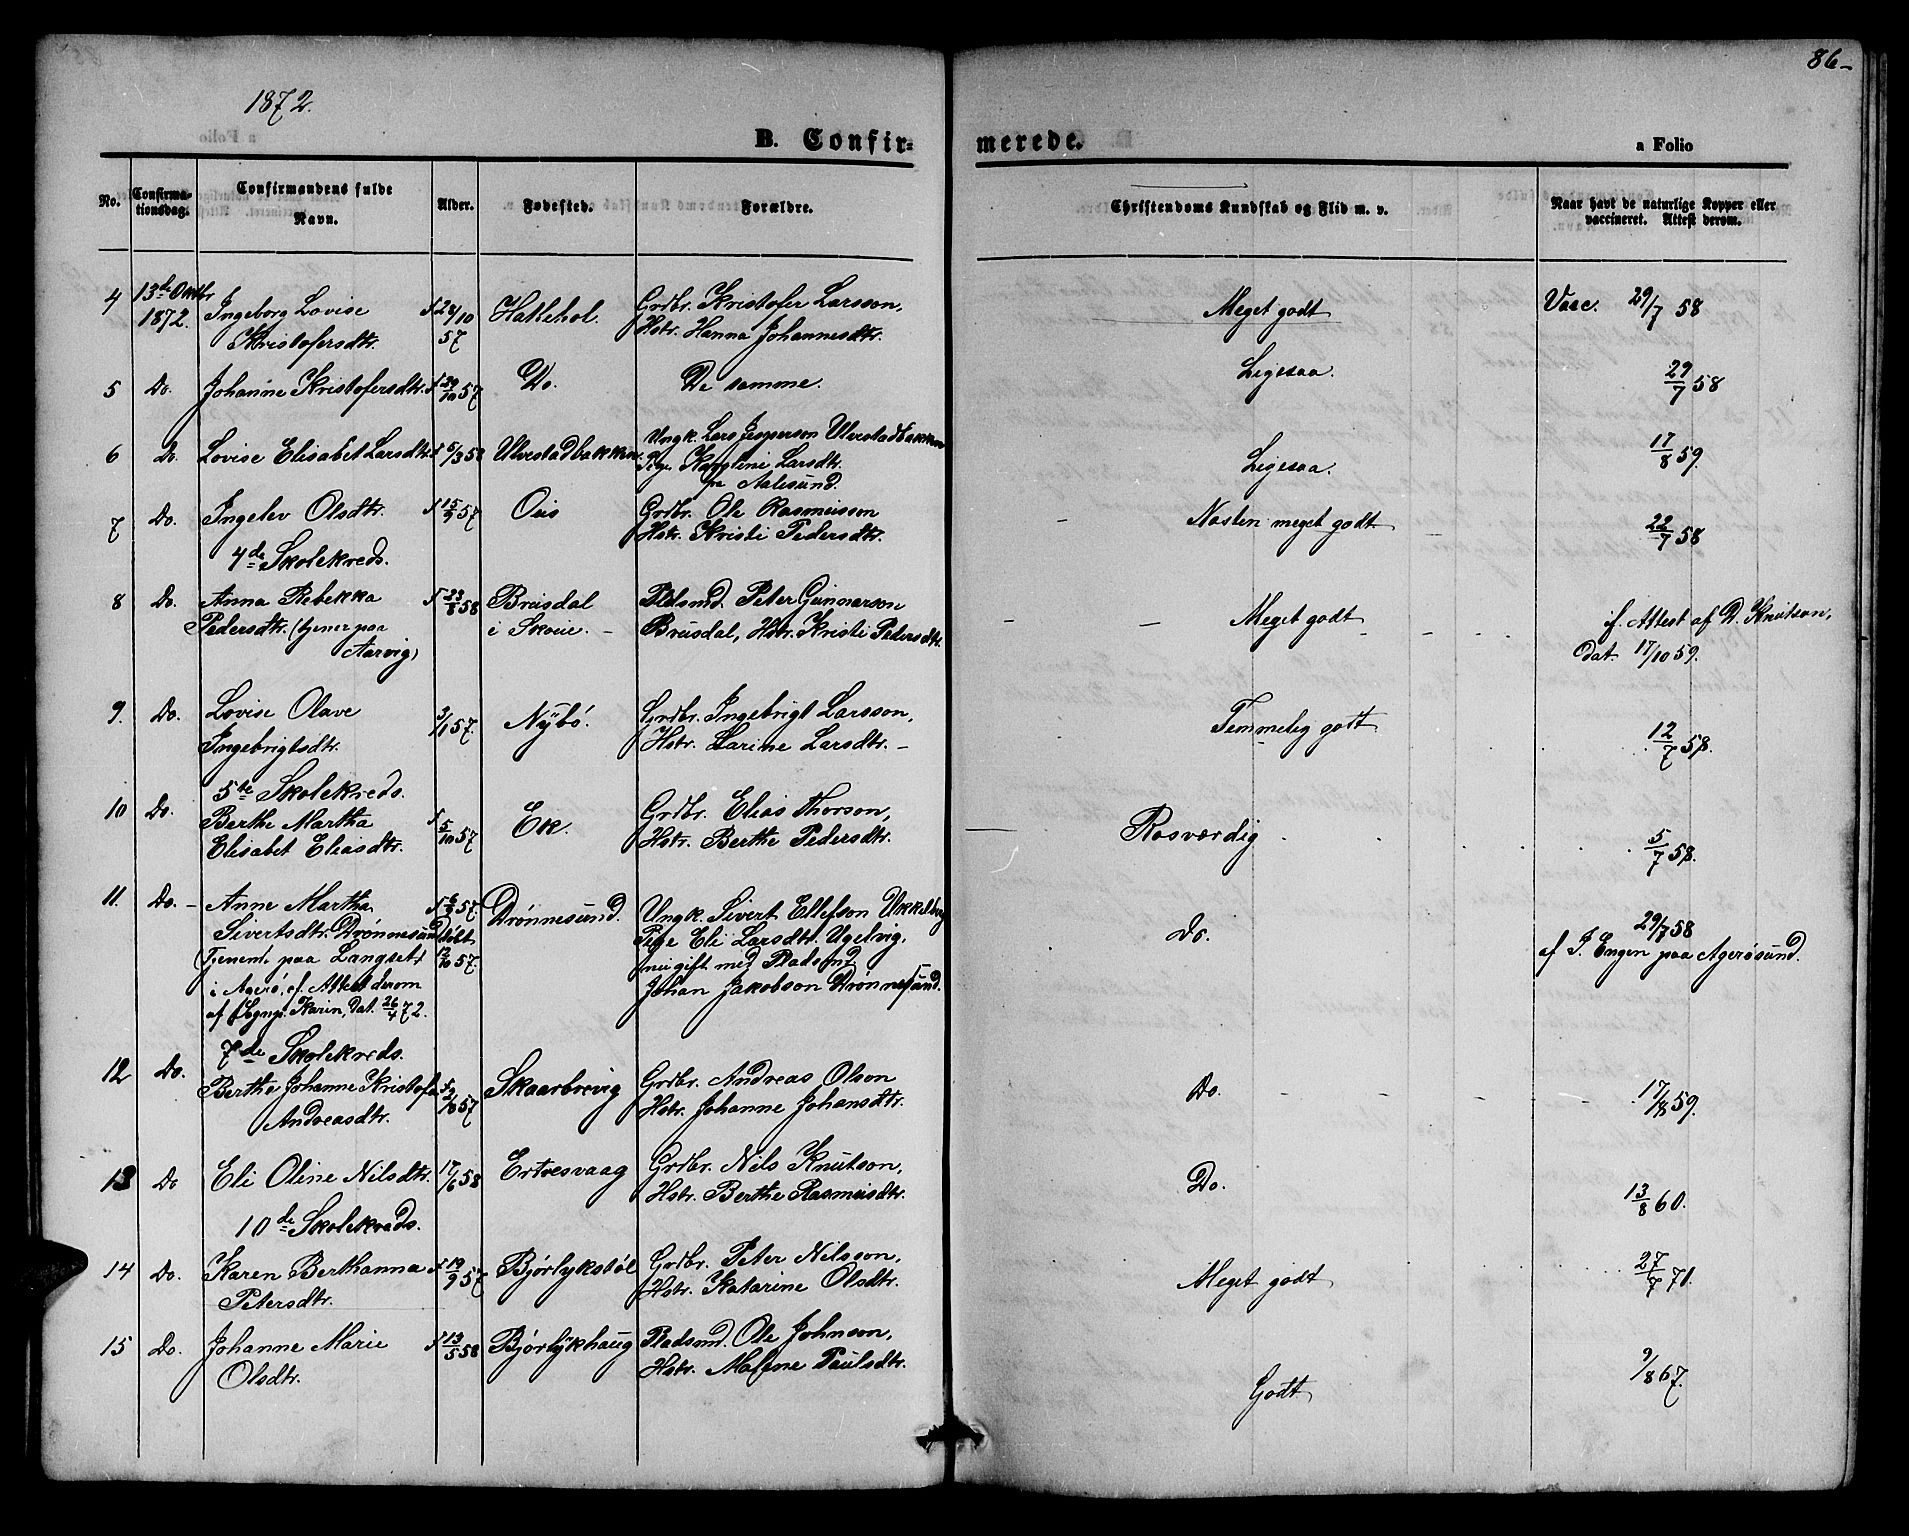 86-
1872.
a Folio
B. Confir-
merede.
a Folio
No.
Confirma-
tionsdag.
Confirmandens fulde
Navn.
Alder.
Fødested.
Forældre.
Christendoms Kundskab og Flid m. v.
Naar havt de naturlige Kopper eller
vaccineret. Attest derom.
4 13de Oktbr
1872. Ingeborg Lovise
Kristofersdtr.
24/10
57
Hallehol.
Grdbr. Kristofer Larsson,
Hstr. Hanna Johannesdtr.
Meget godt
Vacc. 29/7 58
5 Do. Johanne Kristofersdtr. 57 Do. De samme.
Ligesaa.
29/7 58
6 Do. Lovise Elisabet Larsdtr. 5/3 58 Ulvestadbakken.
Ungk. Lars Jesperson Ulvestadbakken
Pige Karoline Larsdtr.
fra Aalesund.
Ligesaa.
17/8 59.
7 Do. Ingelev Olsdtr. 15/9 57 Ous
Grdbr. Ole Rasmusson
Hstr. Kristi Pedersdtr.
Næsten meget godt
22/7 58
4de Skolekreds.
8 Do. Anna Rebekka
Pedersdtr. (tjener paa
Aarvig)
23/8 58
Brusdal
i Skoue.
Pladsmd. Peter Gunnarson
Brusdal, Hstr. Kristi Pedersdtr.
Meget godt
cf. Attest af D. Knutson,
dat. 17/10 59.
9. Do. Lovise Olave
Ingebrigtsdtr.
3/1 57. Nybö.
Grdbr. Ingebrigt Larsson,
Hstr. Larine Larsdtr.
Temmelig godt
12/7 58.
5te Skolekreds.
10 Do. Berthe Martha
Elisabet Eliasdtr.
5/10 57 Ek.
Grdbr. Elias Thorson,
Hstr. Berthe Pedersdtr.
Rosværdig
5/7 58.
11. Do. Anne Martha
Sivertsdtr. Drønnesund
Tjenent. paa Langset
i Agerö, cf. Attest derom
af Sgnp. Karin, dat. 26/4 72.
57.
døbt
57.
Drønnesund.
Ungk. Sivert Ellefson
Pige Eli Larsdtr. Ugelvig,
nu gift med Pladsmd
Johan Jakobson Drønnesund.
Do.
29/7 58
af J. Engen paa Agerøsund.
7de Skolekreds.
12 Do. Berthe Johanne Kristofa
Andreasdtr.
57
Skaarbrevig
Grdbr. Andreas Olson
Hstr. Johanne Johansdtr.
Do.
17/8 59.
13 Do Eli Oline Nilsdtr. 17/6 58 Ertvesvaag
Grdbr. Nils Knutson,
Hstr. Berthe Rasmusdtr.
Do.
13/8 60.
10de Skolekreds.
14 Do. Karen Berthanna
Petersdtr.
19/9 57 Bjørlykstøl
Grdbr. Peter Nilsson,
Hstr. Katarine Olsdtr.
Meget godt
27/7 71.
15 Do. Johanne Marie
Olsdtr.
13/5 58 Bjørlykhaug
Pladsmd. Ole Johnson,
Hstr. Malene Paulsdtr.
Godt
9/8 67.